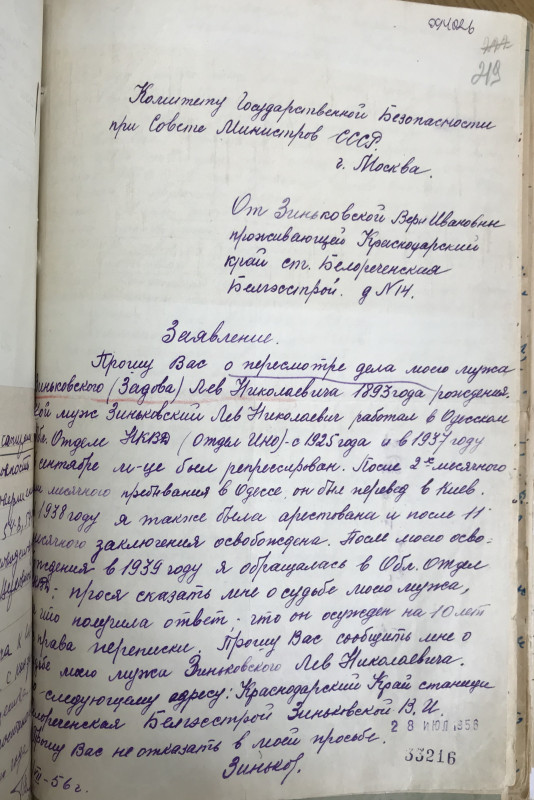 219
Комитету Государственной Безопасности
при Совете Министров СССР.
г. Москва.
От Зиньковской Веры Ивановны
проживающей Краснодарский
край ст. Белореченская
Белгэсстрой. д №14.
Заявление.
Прошу Вас о пересмотре дела моего мужа
Зиньковского (Задова) Лев Николаевича 1893 года рождения.
ой муж Зиньковский Лев Николаевич работал в Одесском
Обл. Отделе НКВД (Отдел Ино) - с 1925 года и в 1937 году
сентябре м-це был репрессирован. После 2х месячного
месячного пребывания в Одессе, он был перевед в Киев.
1938 году я также была арестована и после 11
месячного заключения освобождена. После моего осво-
ждения - в 1939 году я обращалась в Обл. Отдел
прося сказать мне о судьбе моего мужа,
что получила ответ - что он осужден на 10 лет
права переписки. Прошу Вас сообщить мне о
дьбе моего мужа Зиньковского Лев Николаевича.
следующему адресу: Краснодарский Край станица
елореченская Белгэсстрой Зиньковской В. И.
Прошу Вас не отказать в моей просьбе.
28 ИЮЛ 1956
33216
Зиньков.
-56 г.